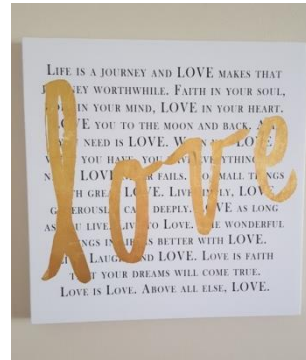 LIFE IS A JOURNEY AND LOVE MAKES THAT
WORTHWHILE. FAITH IN YOUR SOUL,
IN YOUR MIND, LOVE IN YOUR HEART,
YOU TO THE MOON AND BACK.
NEED IS LOVE.
YOU HAVE
FAILS. SMALL THINGS
GREAT LOVE. LIVE
DEEPLY. AS LONG
YOU LIVE. LOVE. WONDERFUL
IN IS BETTER WITH LOVE.
LAUGH AND LOVE. LOVE IS FAITH
YOUR DREAMS WILL COME TRUE.
LOVE IS LOVE. ABOVE ALL ELSE, LOVE.
love